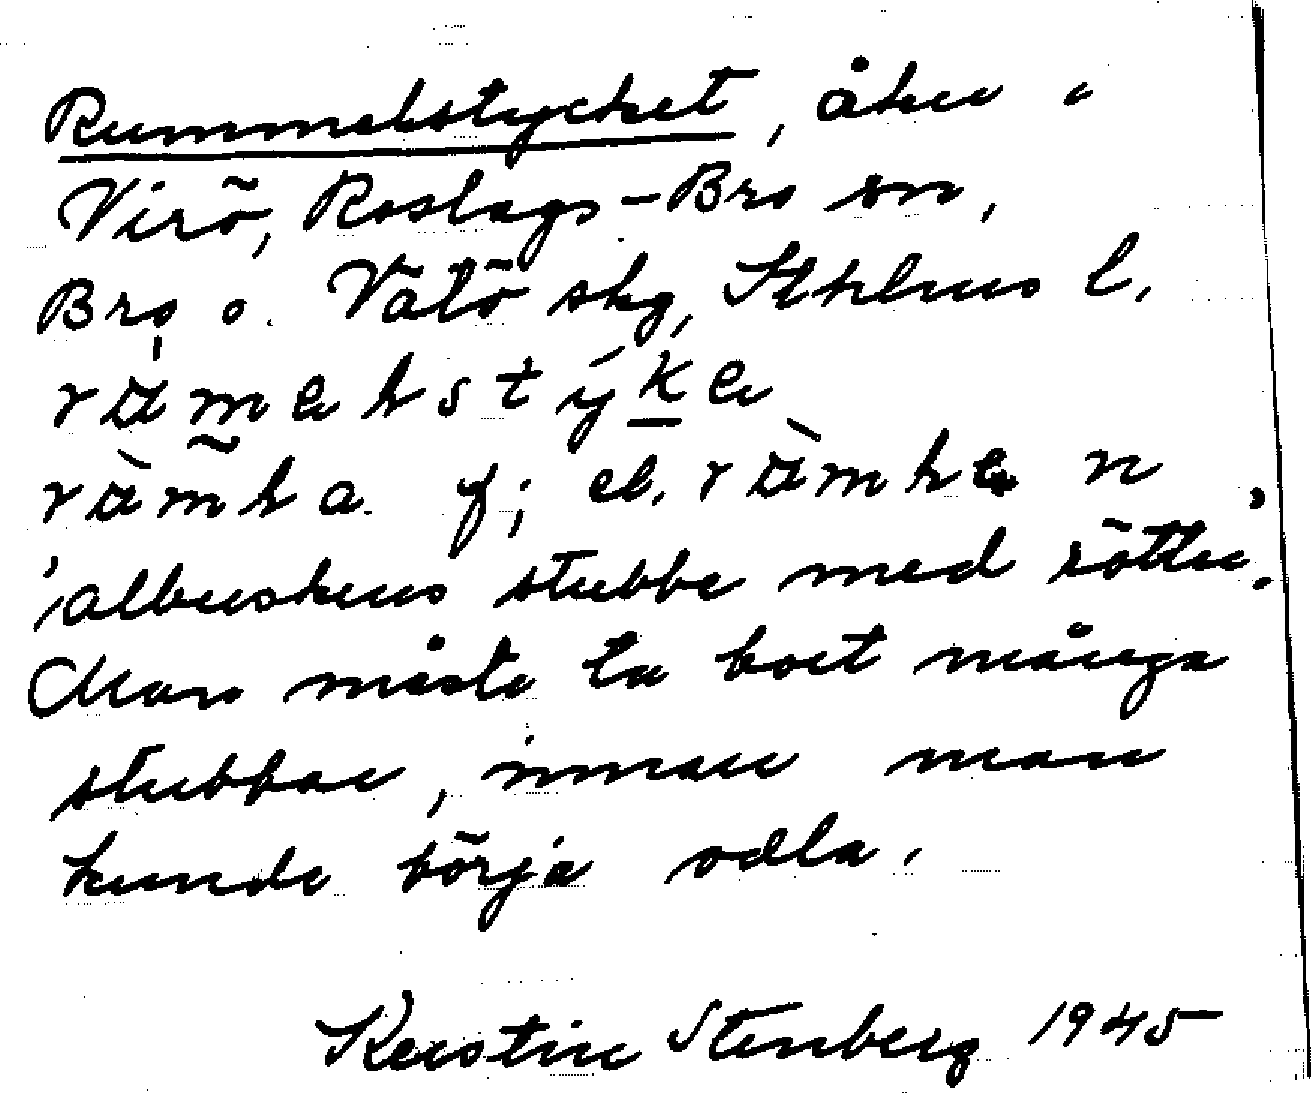 Rummelstycket, åker i
Virö, Roslags-Bro sn,
Bro o. Vätö skg, Sthlms l.
albuskens stubbe med rötter.
Man måste ta bort många
stubbar, innan man
kunde börja odla.
Kerstin Stenberg 1945